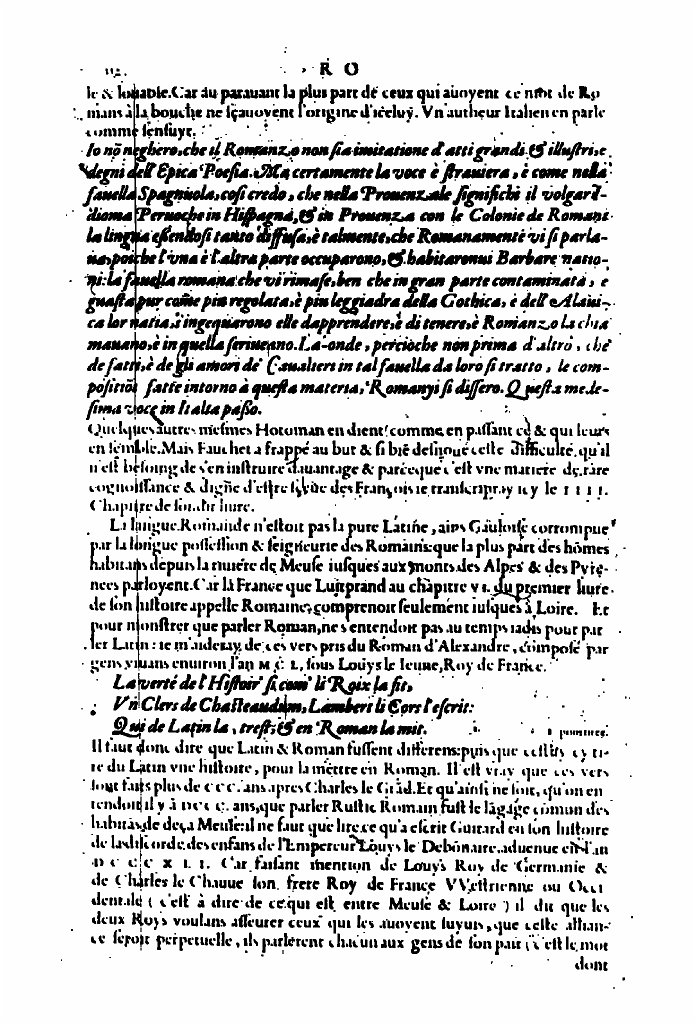 112. R O
le & louable. Car au parauant la plus part de ceux qui auoyent ce mot de Ro
mans à la bouche ne sçauoyent l'origine d'iceluy. Vn autheur Italien en parle
comme s'ensuyt.
Io nõ neghero, che il Romanzo non sia imitatione d'atti grandi & illustri, e
degni dell'Epica Poesia. Ma certamente la voce è straniera, è come nella
fauella Spagnuola, cosi credo, che nella Prouenzale significhi il volgar I-
dioma Peruoche in Hispagna, & in Prouenza con le Colonie de Romani
la lingua essendosi tanto diffusa, è talmente, che Romanamente vi si parla-
ua, poiche l'vna è l'altra parte occuparono, & habitaronui Barbare natio-
ni: la fauella romana che vi rimase, ben che in gran parte contaminata, e
guasta pur come piu regolata, è piu leggiadra della Gothica, è dell' Alani-
ca lor natia, s'ingequarono elle d'apprendere, è di tenere, è Romanzo la chia
mauano, è in quella scriueano. La-onde, percioche non prima d'altro, che
de fatti, è de gli amori de Caualieri in tal fauella da loro si tratto, le com-
positiõi fatte intorno à questa materia, Romanzi si dissero. Questa mede-
sima voce in Italia passo.
Quelques autres mesmes Hotoman en dient comme en passant ce & qui leurs
en semble. Mais Fauchet a frappé au but & si biẽ desnoué ceste difficulté, qu'il
n'est besoing de s'en instruire dauantage & parce que c'est vne matiere de rare
cognoissance & digne d'estre sçeüe des François ie transcripray icy le IIII.
Chapitre de son dit liure.
La langue Romande n'estoit pas la pure Latine, ains Gauloise corrompue
par la longue possession & seigneurie des Romains: que la plus part des hõmes
habitans depuis la riuiere de Meuse iusques aux monts des Alpes & des Pyre-
nees parloyent. Car la France que Luitprand au chapitre VI. du premier liure
de son histoire appelle Romaine, comprenoit seulement iusques à Loire. Et
pour monstrer que parler Roman, ne s'entendoit pas au temps iadis pour par
ler Latin: ie m'aideray de ces vers pris du Roman d'Alexandre, cõposé par
gens viuans enuiron l'an M C L, sous Louys le Ieune, Roy de France.
La verté de l'Histoir si com' li Roix la fit,
Vn Clers de Chasteaudun, Lambert li Cors l'escrit:
Qui de Latin la, trest, & en Roman la mit.
Il faut donc dire que Latin & Roman fussent differens: puis que cestuy cy ti-
re du Latin vne histoire, pour la mettre en Roman. Il est vray que ces vers
sont faits plus de CCC. ans apres Charles le Grãd. Et qu'ainsi ne soit, qu'on en
tendoit il y à DCC C. ans, que parler Rustic Romain fust le lãgage cõmun des
habitãs de deça Meuse: il ne faut que lire ce qu'a escrit Guitard en son histoire
de la discorde des enfans de l'Empereur Louys le Debonaire, aduenue en l'an
D C C C X L I. Car faisant mention de Louys Roy de Germanie &
de Charles le Chauue son frere Roy de France VVestrienne ou Occi
dentale ( c'est à dire de ce qui est entre Meuse & Loire ) il dit que les
deux Roys voulans asseurer ceux qui les auoyent suyuis, que ceste allian-
ce seroit perpetuelle, ils parlerent chacun aux gens de son pait (c'est le mot
dont